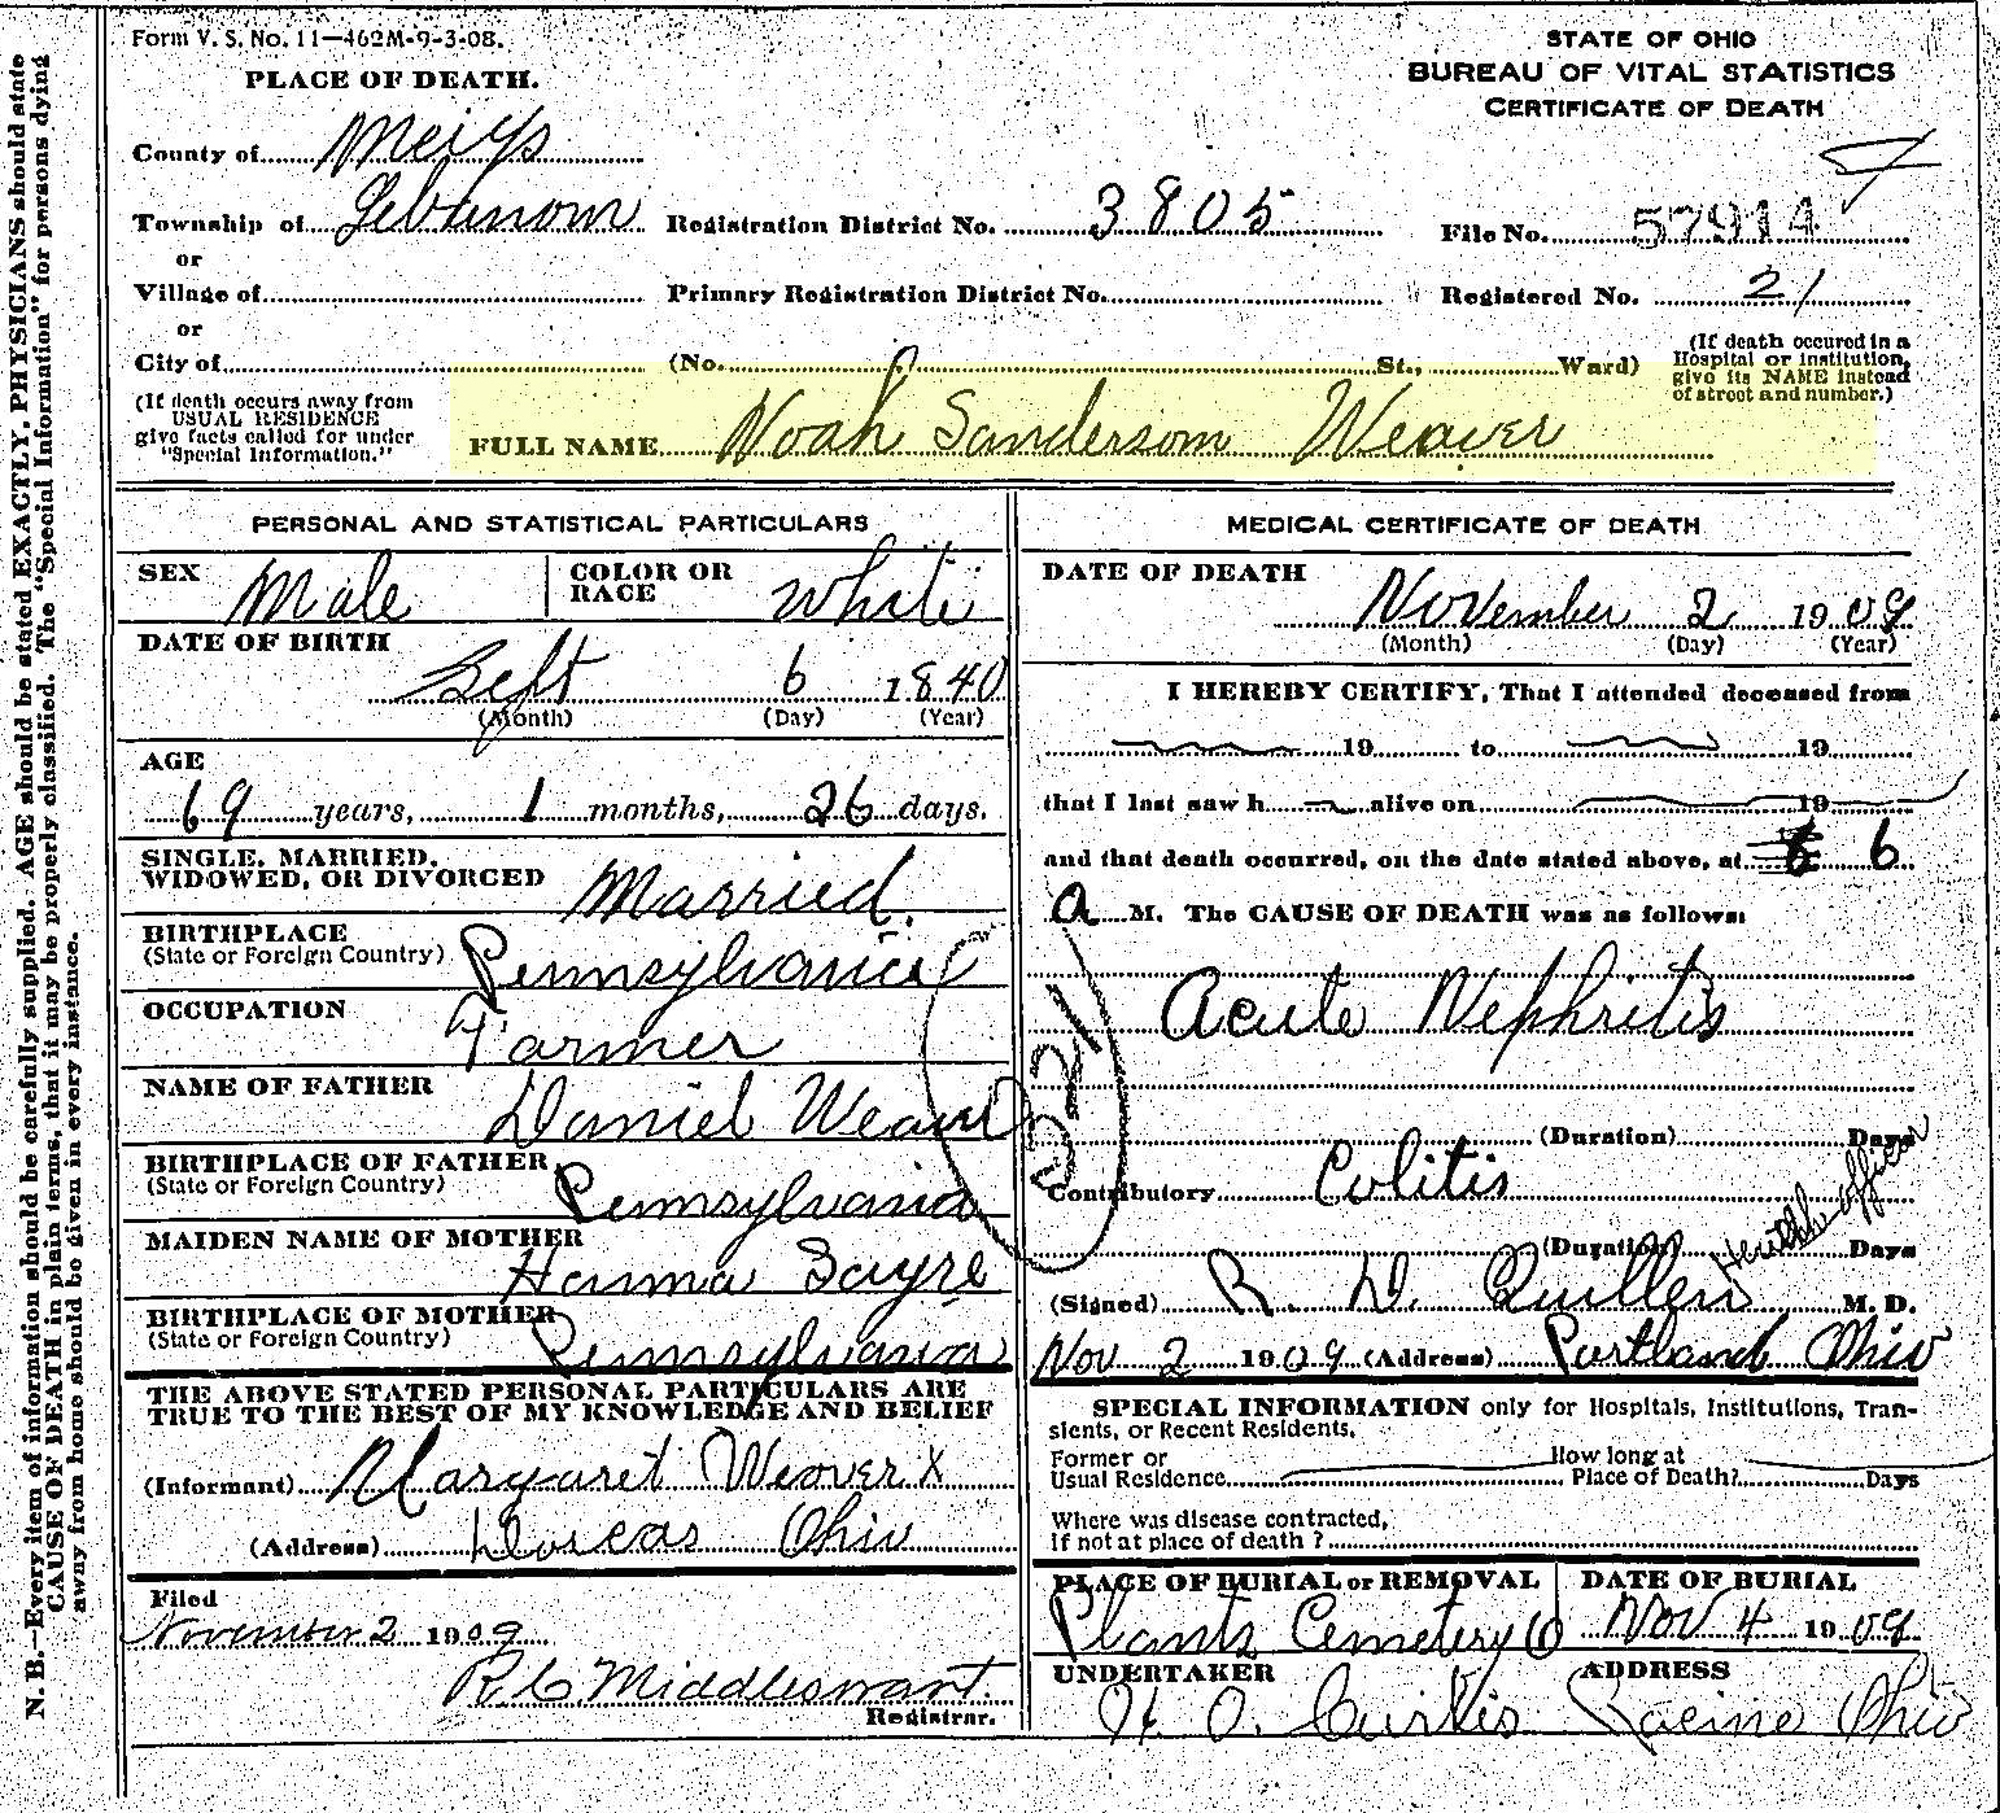 Form V. S. No. 11—462M-9-3-08.
PLACE OF DEATH.
STATE OF OHIO
BUREAU OF VITAL STATISTICS
CERTIFICATE OF DEATH
County of Meigs
Township of Lebanon Registration District No. 3805 File No. 57914
or
Village of Primary Registration District No. Registered No. 21
or
City of (No. St., Ward)
(If death occured in a
Hospital or institution,
give its NAME instead
of street and number.)
(If death occurs away from
USUAL RESIDENCE
give facts called for under
"Special Information."
FULL NAME Noah Sanderson Weaver
PERSONAL AND STATISTICAL PARTICULARS
SEX Male COLOR OR RACE White
DATE OF BIRTH
Sept 6 1840
(Month) (Day) (Year)
AGE
69 years, 1 months, 26 days.
SINGLE, MARRIED,
WIDOWED, OR DIVORCED Married.
BIRTHPLACE
(State or Foreign Country) Pennsylvania
OCCUPATION
Farmer
NAME OF FATHER
Daniel Weaver
BIRTHPLACE OF FATHER
(State or Foreign Country) Pennsylvania
MAIDEN NAME OF MOTHER
Hanna Sayre
BIRTHPLACE OF MOTHER
(State or Foreign Country) Pennsylvania
THE ABOVE STATED PERSONAL PARTICULARS ARE
TRUE TO THE BEST OF MY KNOWLEDGE AND BELIEF
(Informant) Margaret Weaver X
(Address) Dorcas Ohio
Filed
November 2 1909
R C Middleswart.
Registrar.
MEDICAL CERTIFICATE OF DEATH
DATE OF DEATH
November 2 1909
(Month) (Day) (Year)
I HEREBY CERTIFY, That I attended deceased from
19 to 19
that I last saw h alive on 19
and that death occurred, on the date stated above, at 6
a M. The CAUSE OF DEATH was as follows:
Acute Nephritis
(Duration) Days
Contributory Colitis
(Duration) Days
Health officer
(Signed) R. D. Quillen M. D.
Nov 2 1909 (Address) Portland Ohio
SPECIAL INFORMATION only for Hospitals, Institutions, Tran-
sients, or Recent Residents.
Former or How long at
Usual Residence Place of Death? Days
Where was disease contracted,
if not at place of death ?
PLACE OF BURIAL or REMOVAL DATE OF BURIAL
Plants Cemetery O Nov 4 1909
UNDERTAKER ADDRESS
H. O. Curtis Racine Ohio
N. B.—Every item of information should be carefully supplied. AGE should be stated EXACTLY. PHYSICIANS should state
CAUSE OF DEATH in plain terms, that it may be properly classified. The "Special Information" for persons dying
away from home should be given in every instance.